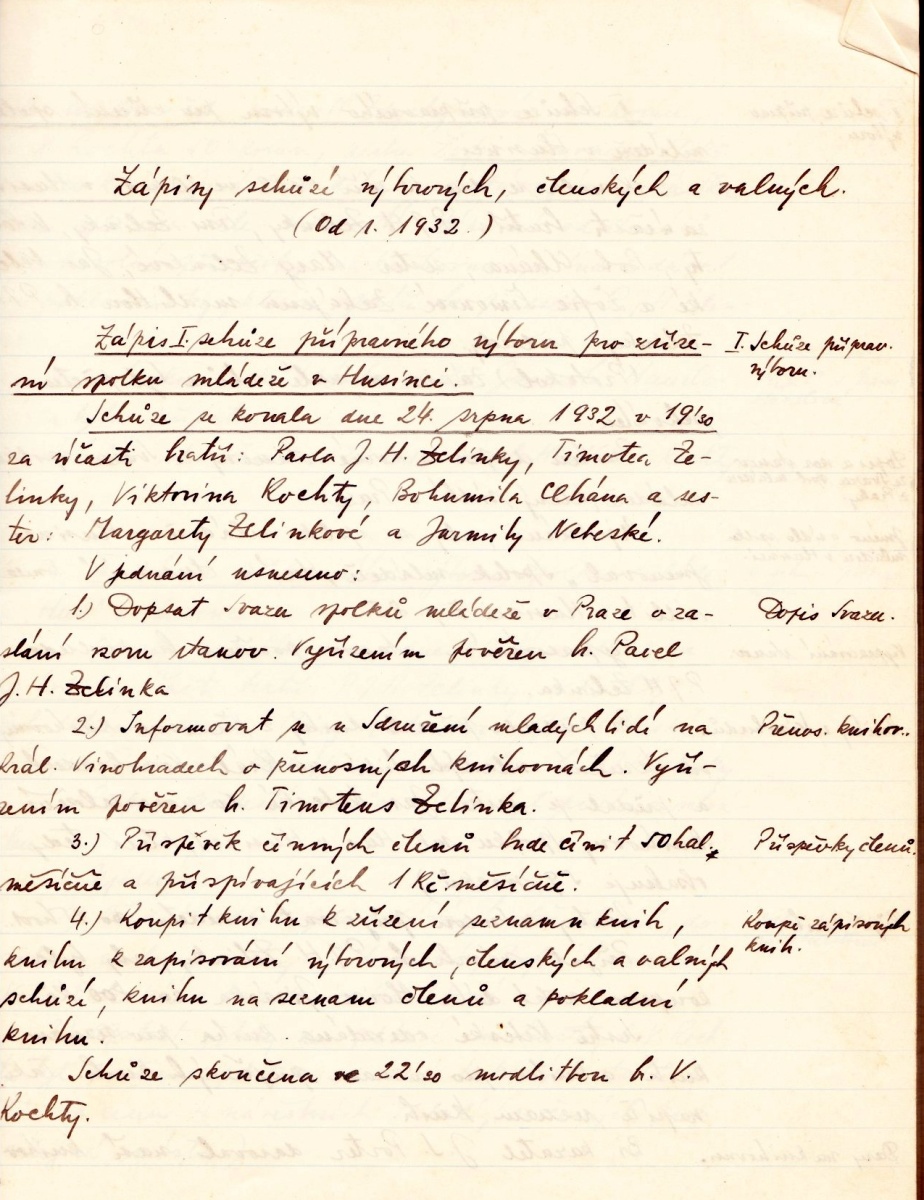 Zápisy schůzí výborových, členských a valných.
(Od r. 1932.)
Zápis I. schůze přípravného výboru pro zříze-
ní spolku mládeže v Husinci.
I. Schůze příprav.
výboru.
Schůze se konala dne 24. srpna 1932 v 19'30
za účasti bratří: Pavla J. H. Zelinky, Timotea Ze-
linky, Viktorina Kochty, Bohumila Uhána a ses-
ter: Margarety Zelinkové a Jarmily Nebeské.
V jednání usneseno:
1.) Dopsat Svazu spolků mládeže v Praze o za-
slání vzoru stanov. Vyřízením pověřen b. Pavel
J. H. Zelinka
Dopis Svazu.
2.) Informovat se u Sdružení mladých lidí na
Král. Vinohradech o přenosných knihovnách. Vyří-
zením pověřen b. Timoteus Zelinka.
Přenos. knihov..
3.) Příspěvek činných členů bude činit 50 hal.
měsíčně a přispívajících 1 Kč. měsíčně.
Příspěvky členů.
4.) Koupit knihu k zřízení seznamu knih,
knihu k zapisování výborových, členských a valných
schůzí, knihu na seznam členů a pokladní
knihu.
Koupě zápisových
knih.
Schůze skončena ve 22'30 modlitbou b. V.
Kochty.